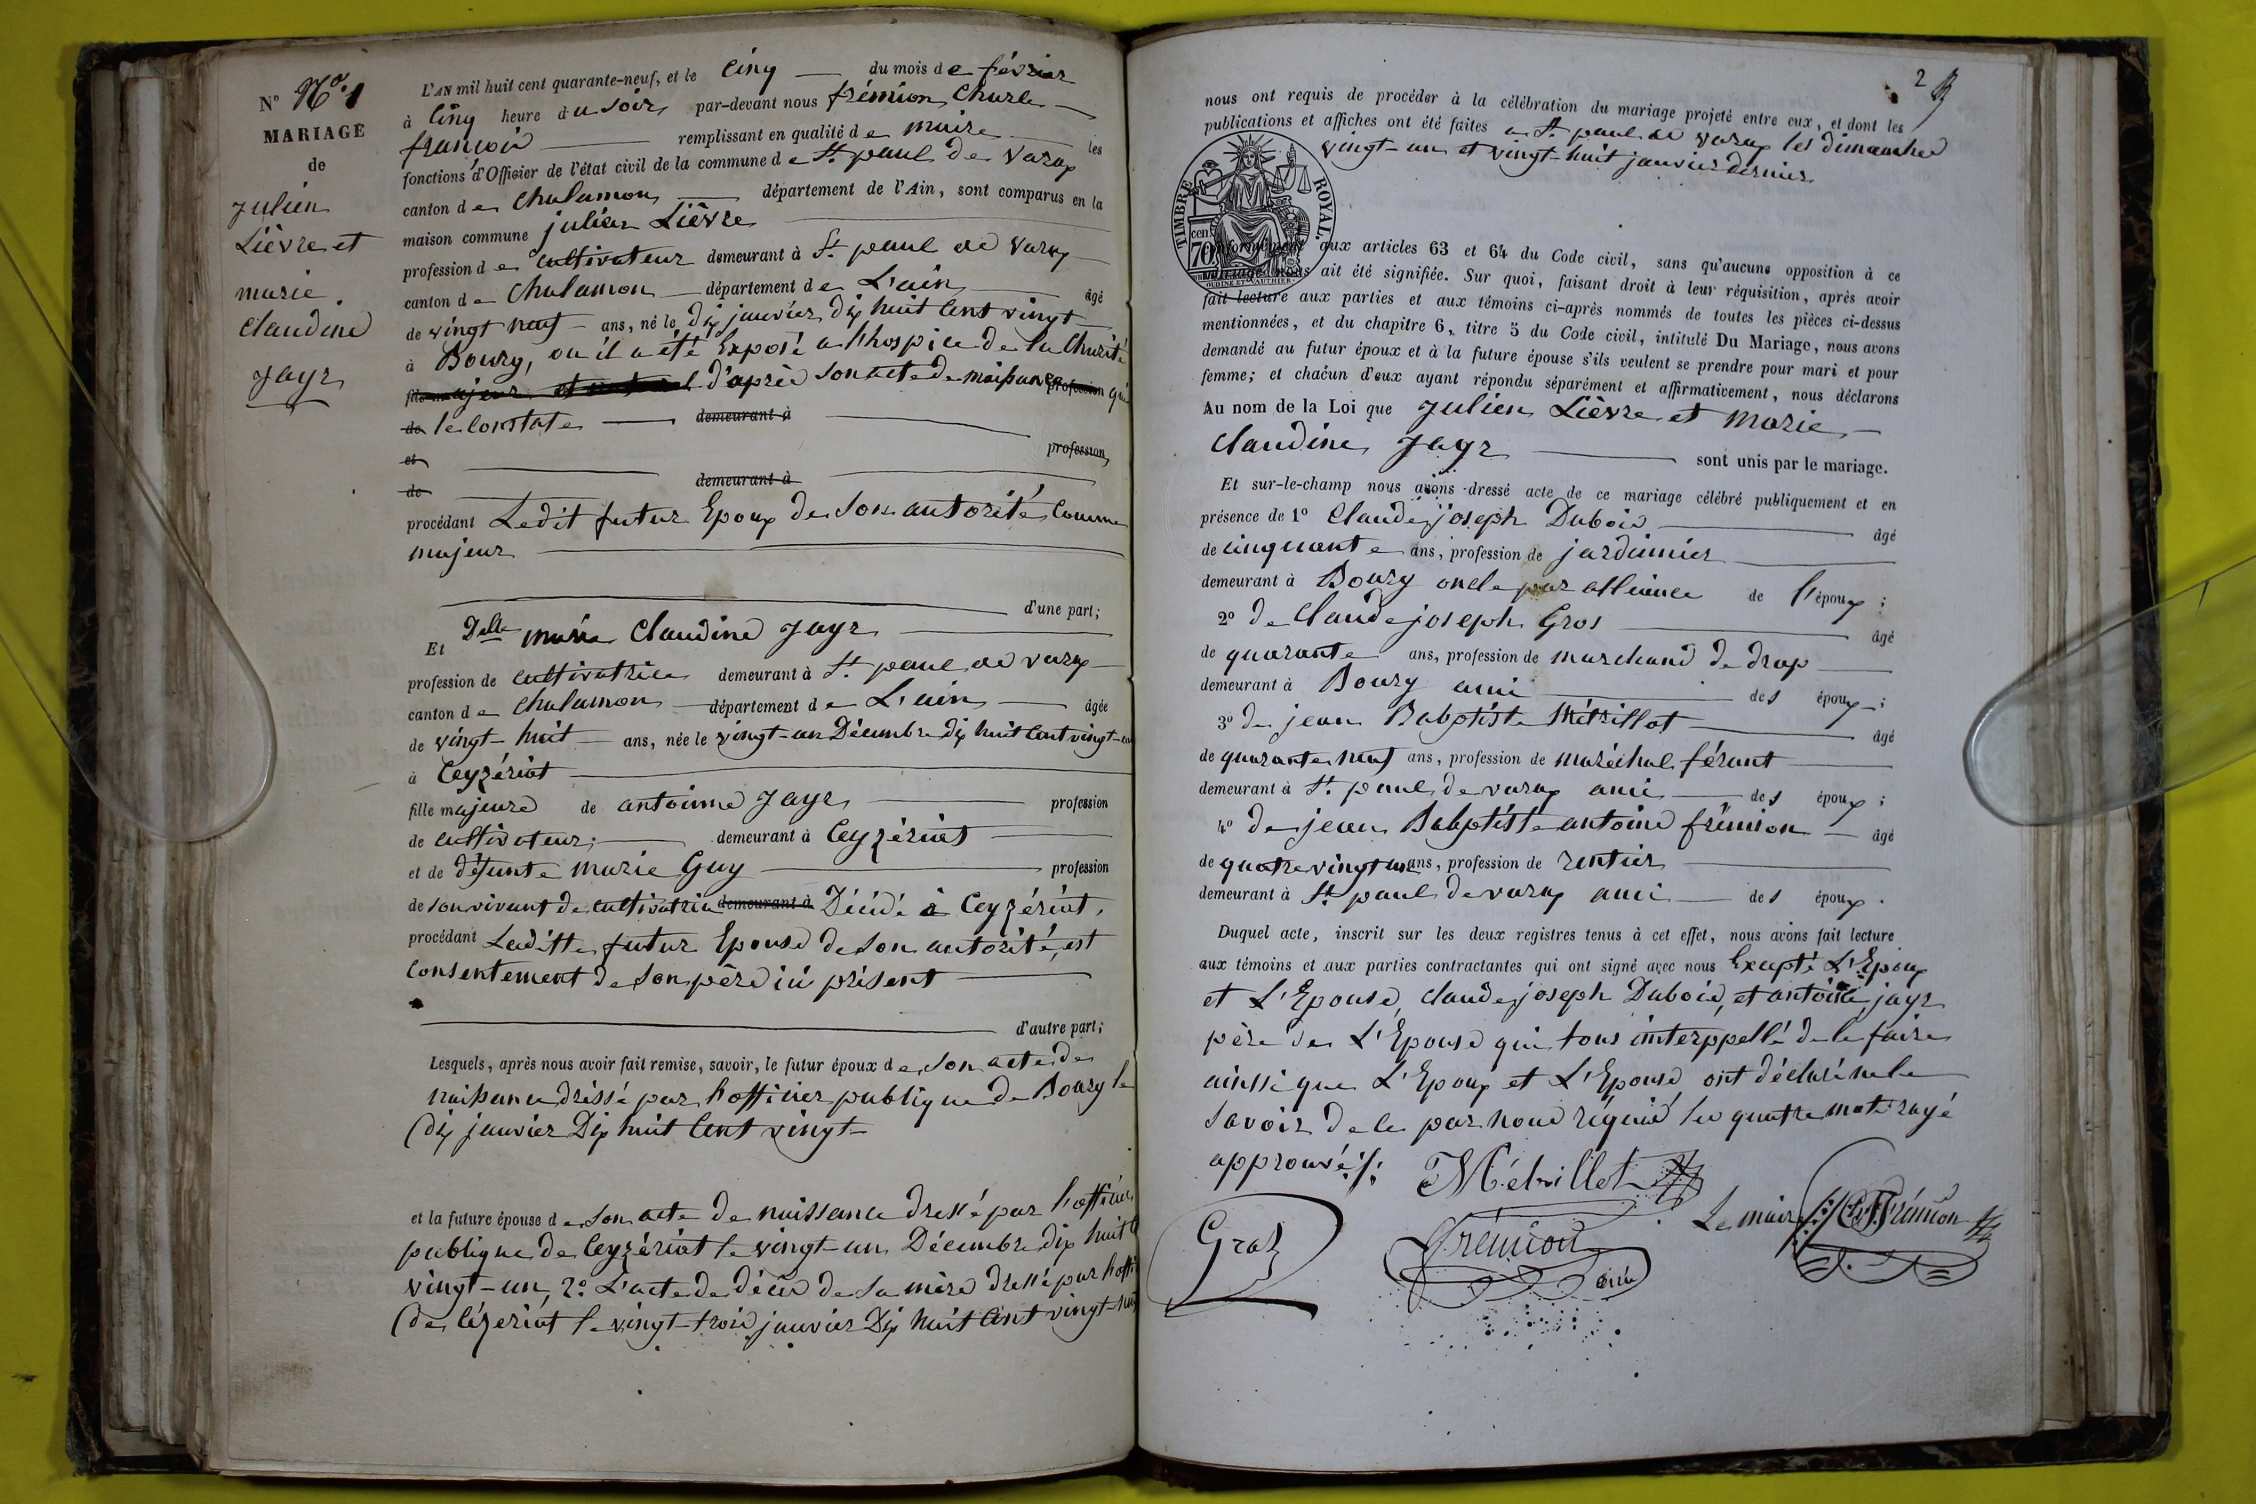 N° N° 1
MARIAGE
de
Julien
Lièvre et
marie
Claudine
Jayr
L'AN mil huit cent quarante-neuf, et le cinq du mois de février
à cinq heure du soir par-devant nous frémion Charle
françois remplissant en qualité de maire les
fonctions d'Officier de l'état civil de la commune de St paul de varax
canton de Chalamon département de l'Ain, sont comparus en la
maison commune julien Lièvre
profession de cultivateur demeurant à St paul de varax
canton de Chalamon département de L'ain âgé
de vingt neuf ans, né le dix janvier dix huit Cent vingt
à Bourg, ou il a été Exposé a l'hospice de la Charité
fils d'après son acte de naissance profession qui
de le Constate demeurant à
et profession
de demeurant à
procédant Ledit futur Epoux de son autorité Comme
majeur
d'une part;
Et Delle marie Claudine Jayr
profession de cultivatrice demeurant à St paul de varax
canton de Chalamon département de L'ain âgée
de vingt-huit ans, née le vingt-un Décembre dix huit Cent vingt-un
à Ceyzériat
fille majeure de antoinne Jayr profession
de cultivateur; demeurant à Ceyzériat
et de défunte marie Guy profession
de son vivant de cultivatrice demeurant à Décédé à Ceyzériat.
procédant Laditte futur Epouse de son autorité, est
Consentement de son père ici présent
d'autre part;
Lesquels, après nous avoir fait remise, savoir, le futur époux de son acte de
naissance dréssé par l'officier publique de Bourg le
dix janvier Dix huit Cent vingt
et la future épouse de son acte de naissance dressé par l'officier
publique de Ceyzériat le vingt-un Décembre dix huit C
vingt-un, 2° L'acte de décès de sa mère dressé par l'offi
de Cézériat le vingt-trois janvier Dix huit Cent vingt-neuf
2
nous ont requis de procéder à la célébration du mariage projeté entre eux, et dont les
publications et affiches ont été faites a St paul de varax les dimanches
vingt-un et vingt-huit janvier dernier
TIMBRE ROYAL.
cen 70
OUDINÉ ET VAUTHIER
conformément aux articles 63 et 64 du Code civil, sans qu'aucune opposition à ce
mariage nous ait été signifiée. Sur quoi, faisant droit à leur réquisition, après avoir
fait lecture aux parties et aux témoins ci-après nommés de toutes les pièces ci-dessus
mentionnées, et du chapitre 6, titre 5 du Code civil, intitulé Du Mariage, nous avons
demandé au futur époux et à la future épouse s'ils veulent se prendre pour mari et pour
femme; et chacun d'eux ayant répondu séparément et affirmativement, nous déclarons
Au nom de la Loi que Julien Lièvre et Marie
Claudine Jayr sont unis par le mariage.
Et sur-le-champ nous avons dressé acte de ce mariage célébré publiquement et en
présence de 1° Claude joseph Dubois âgé
de cinquante ans, profession de jardinnier
demeurant à Bourg oncle par alliance de l'époux;
2° de Claude joseph Gros âgé
de quarante ans, profession de marchand de drap
demeurant à Bourg ami des époux;
3° de jean Babptiste Métrillot âgé
de quarante neuf ans, profession de maréchal férant
demeurant à St paul de varax ami des époux;
4° de jean Babptiste antoine frémion âgé
de quatre vingt un ans, profession de rentier
demeurant à St paul de varax ami des époux.
Duquel acte, inscrit sur les deux registres tenus à cet effet, nous avons fait lecture
aux témoins et aux parties contractantes qui ont signé avec nous Excepté L'Epoux
et L'Epouse, Claude joseph Dubois, et antoine jayr
père de L'Epouse qui tous interppellé de le faire
ainssi que L'Epoux et L'Epouse ont déclaré ne le
savoir de ce par nous réquis les quatre mots rayé
approuvé ./.
Métrillot
Gros
frémion
ainé
Le maire Ch. F. Frémion